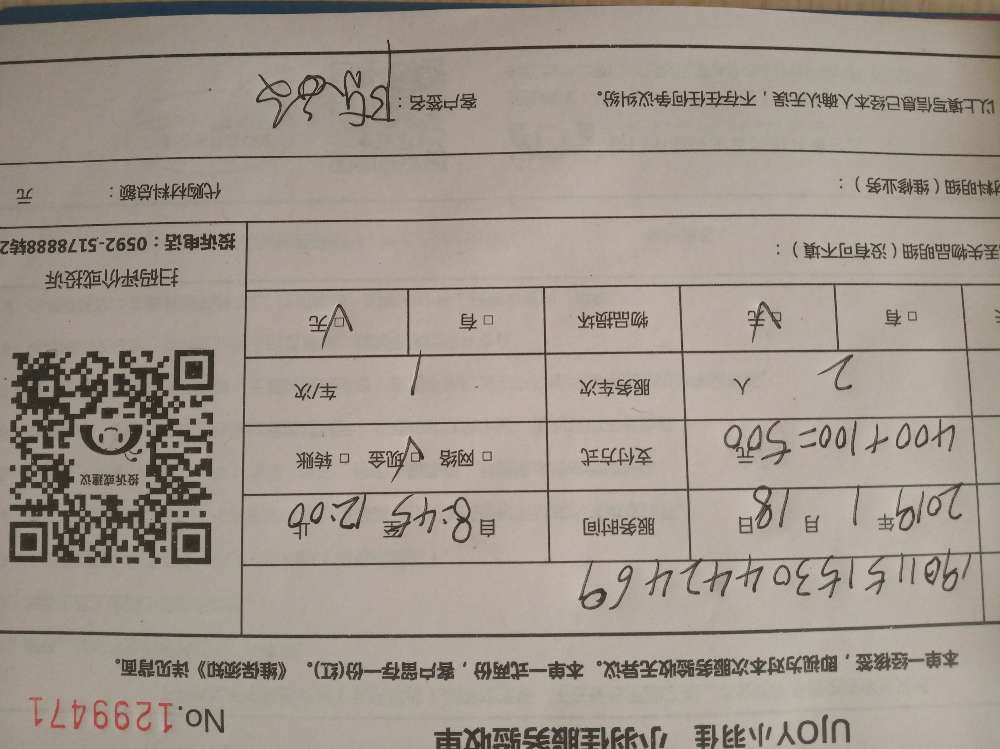 UJOY小羽佳 小羽佳服务验收单
No.1299471
本单一经核签,即视为对本次服务验收无异议。本单一式两份,客户留存一份(红)。《维保须知》详见背面。
19011515304424 69
2019年1月18日 服务时间 自8:45至12:00止
400+100=500元 支付方式 □网络 □现金 □转账
2人 服务车次 1车/次
□有 □无 物品损坏 □有 □无
丢失物品明细(没有可不填):
投诉或建议
扫码评价或投诉
投诉电话:0592-5178888转2
材料明细(维修业务): 代购材料总额: 元
以上填写信息已经本人确认无误,不存在任何争议纠纷。 客户签名: